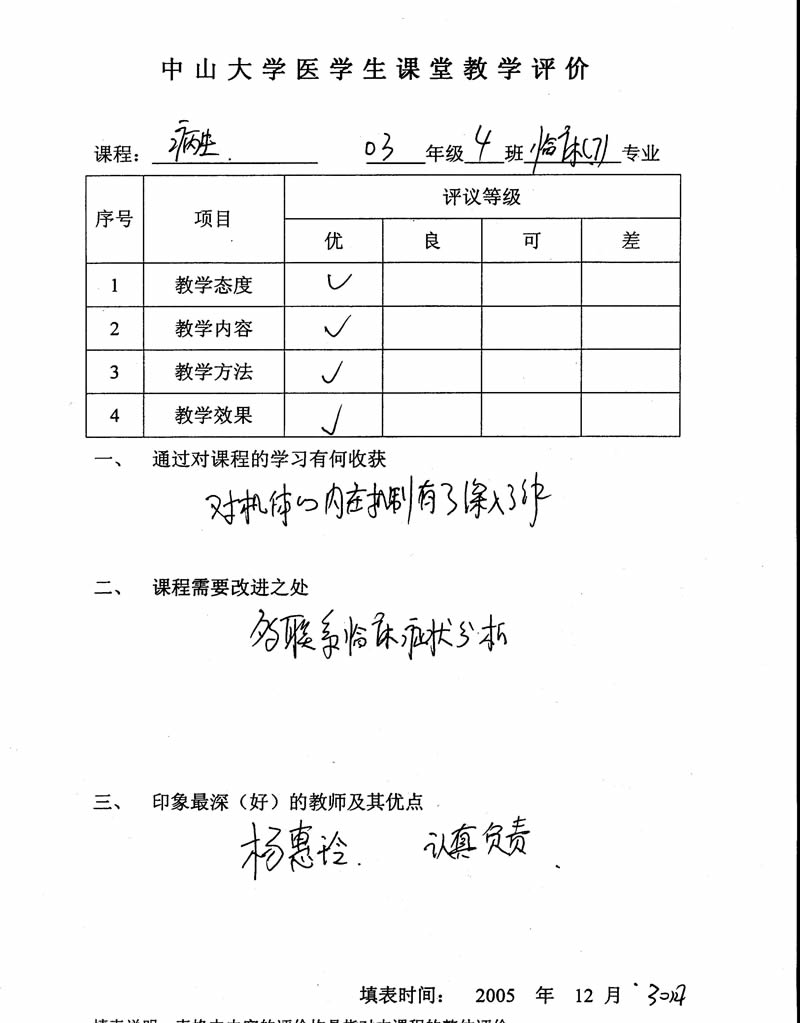 中山大学医学生课堂教学评价
课程: 病生. 03 年级 4 班 临床(7) 专业
序号 项目 评议等级
优 良 可 差
1 教学态度 ✓
2 教学内容 ✓
3 教学方法 ✓
4 教学效果 ✓
一、 通过对课程的学习有何收获
对机体的内在机制有了深入了解
二、 课程需要改进之处
联系临床症状分析
三、 印象最深（好）的教师及其优点
杨惠玲. 认真负责.
填表时间： 2005 年 12 月 30日